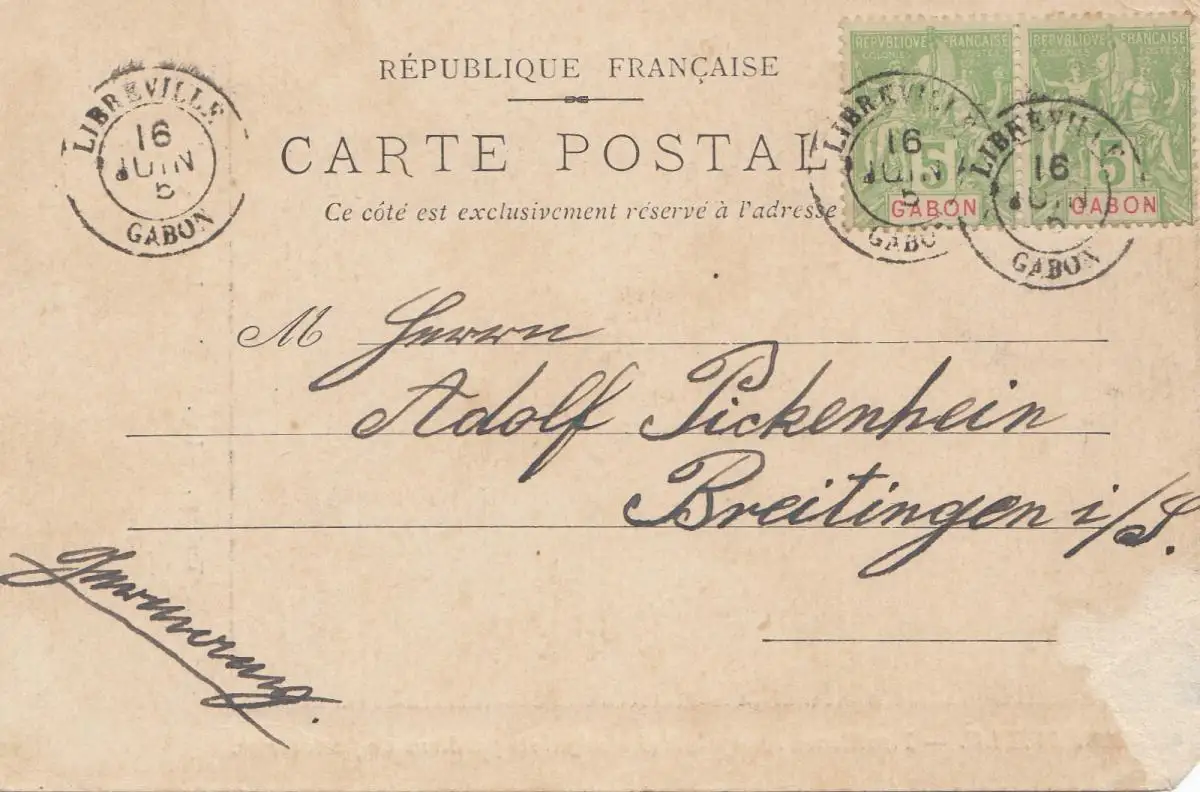 RÉPUBLIQUE FRANÇAISE
CARTE POSTAL
Ce côté est exclusivement réservé à l'adresse
LIBREVILLE
16
JUIN
5
GABON
RÉPUBLIQUE FRANÇAISE
COLONIES POSTES
5
GABON
RÉPUBLIQUE FRANÇAISE
COLONIES POSTES
5
GABON
LIBREVILLE
16
JUIN
5
GABON
LIBREVILLE
16
JUIN
5
GABON
M Herrn
Adolf Pickenhein
Breitingen i/S.
Germany.